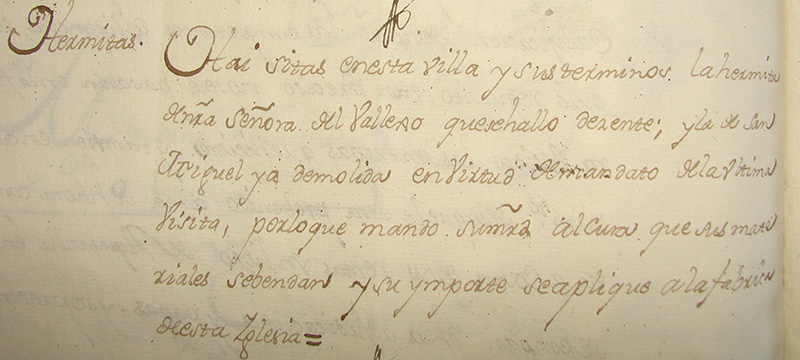 Hermitas.
Hai sitas enesta villa y susterminos la hermita
de nr̃a Señora del Vallejo quesehallo dezente; y la de San
Miguel ya demolida en Virtud de mandato de la Vltima
Visita, porloque mando sum̃rd al Cura que sus mate
riales sebendan y su ymporte seaplique a la fabrica
de esta Yglesia=